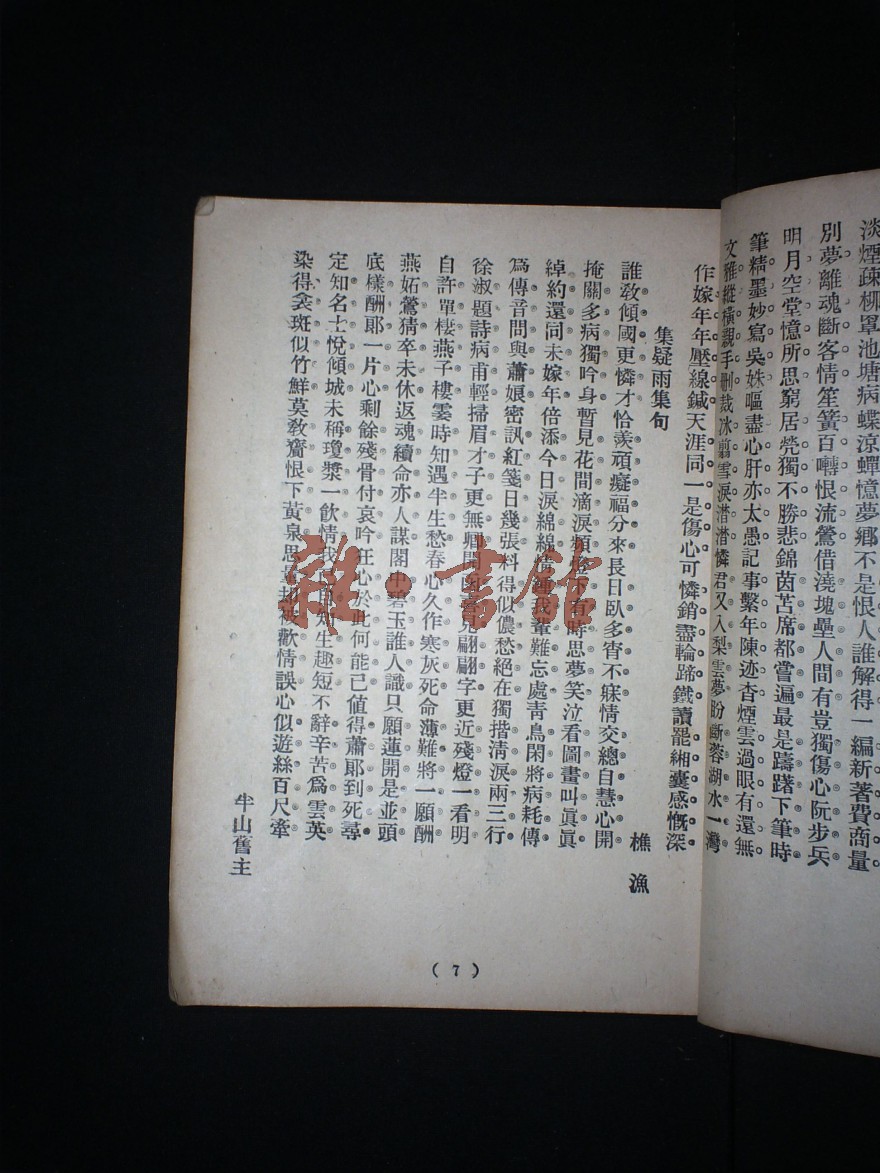 淡煙疎柳罩池塘病蝶涼蟬憶夢鄉不是恨人誰解得一編新著費商量
別夢離魂斷客情笙簧百囀恨流鶯借澆塊壘人間有豈獨傷心阮步兵
明月空堂憶所思窮居煢獨不勝悲錦茵苫席都嘗遍最是躊躇下筆時
筆精墨妙寫吳姝嘔盡心肝亦太愚記事繫年陳迹杳煙雲過眼有還無
文雅縱橫親手删裁冰翦雪淚潸潸憐君又入梨雲夢盼斷蓉湖水一灣
作嫁年年壓線鍼天涯同一是傷心可憐銷盡輪蹄鐵讀罷緗囊感慨深
樵漁
集疑雨集句
誰教傾國更憐才恰羨頑癡福分來長日臥多宵不寐情交總自慧心開
掩關多病獨吟身暫見花間滴淚頻 不有時思夢笑泣看圖畫叫眞眞
綽約還同未嫁年倍添今日淚綿綿情鍾我輩難忘處靑鳥閑將病耗傳
爲傳音問與蕭娘密訊紅箋日幾張料得似儂愁絕在獨揩清淚兩三行
徐淑題詩病甫輕掃眉才子更無卿開函 見翩翩字更近殘燈一看明
自許單棲燕子樓霎時知遇半生愁春心久作寒灰死命薄難將一願酬
燕妬鶯猜卒未休返魂續命亦人謀閣中碧玉誰人識只願蓮開是並頭
底樣酬郞一片心剩餘殘骨付哀吟狂心於此何能已値得蕭郞到死尋
定知名士悅傾城未稱瓊漿一飮情我 自知生趣短不辭辛苦爲雲英
染得衾斑似竹鮮莫教齎恨下黃泉思量却被歡情誤心似遊絲百尺牽
半山舊主
(7)
雜·書館